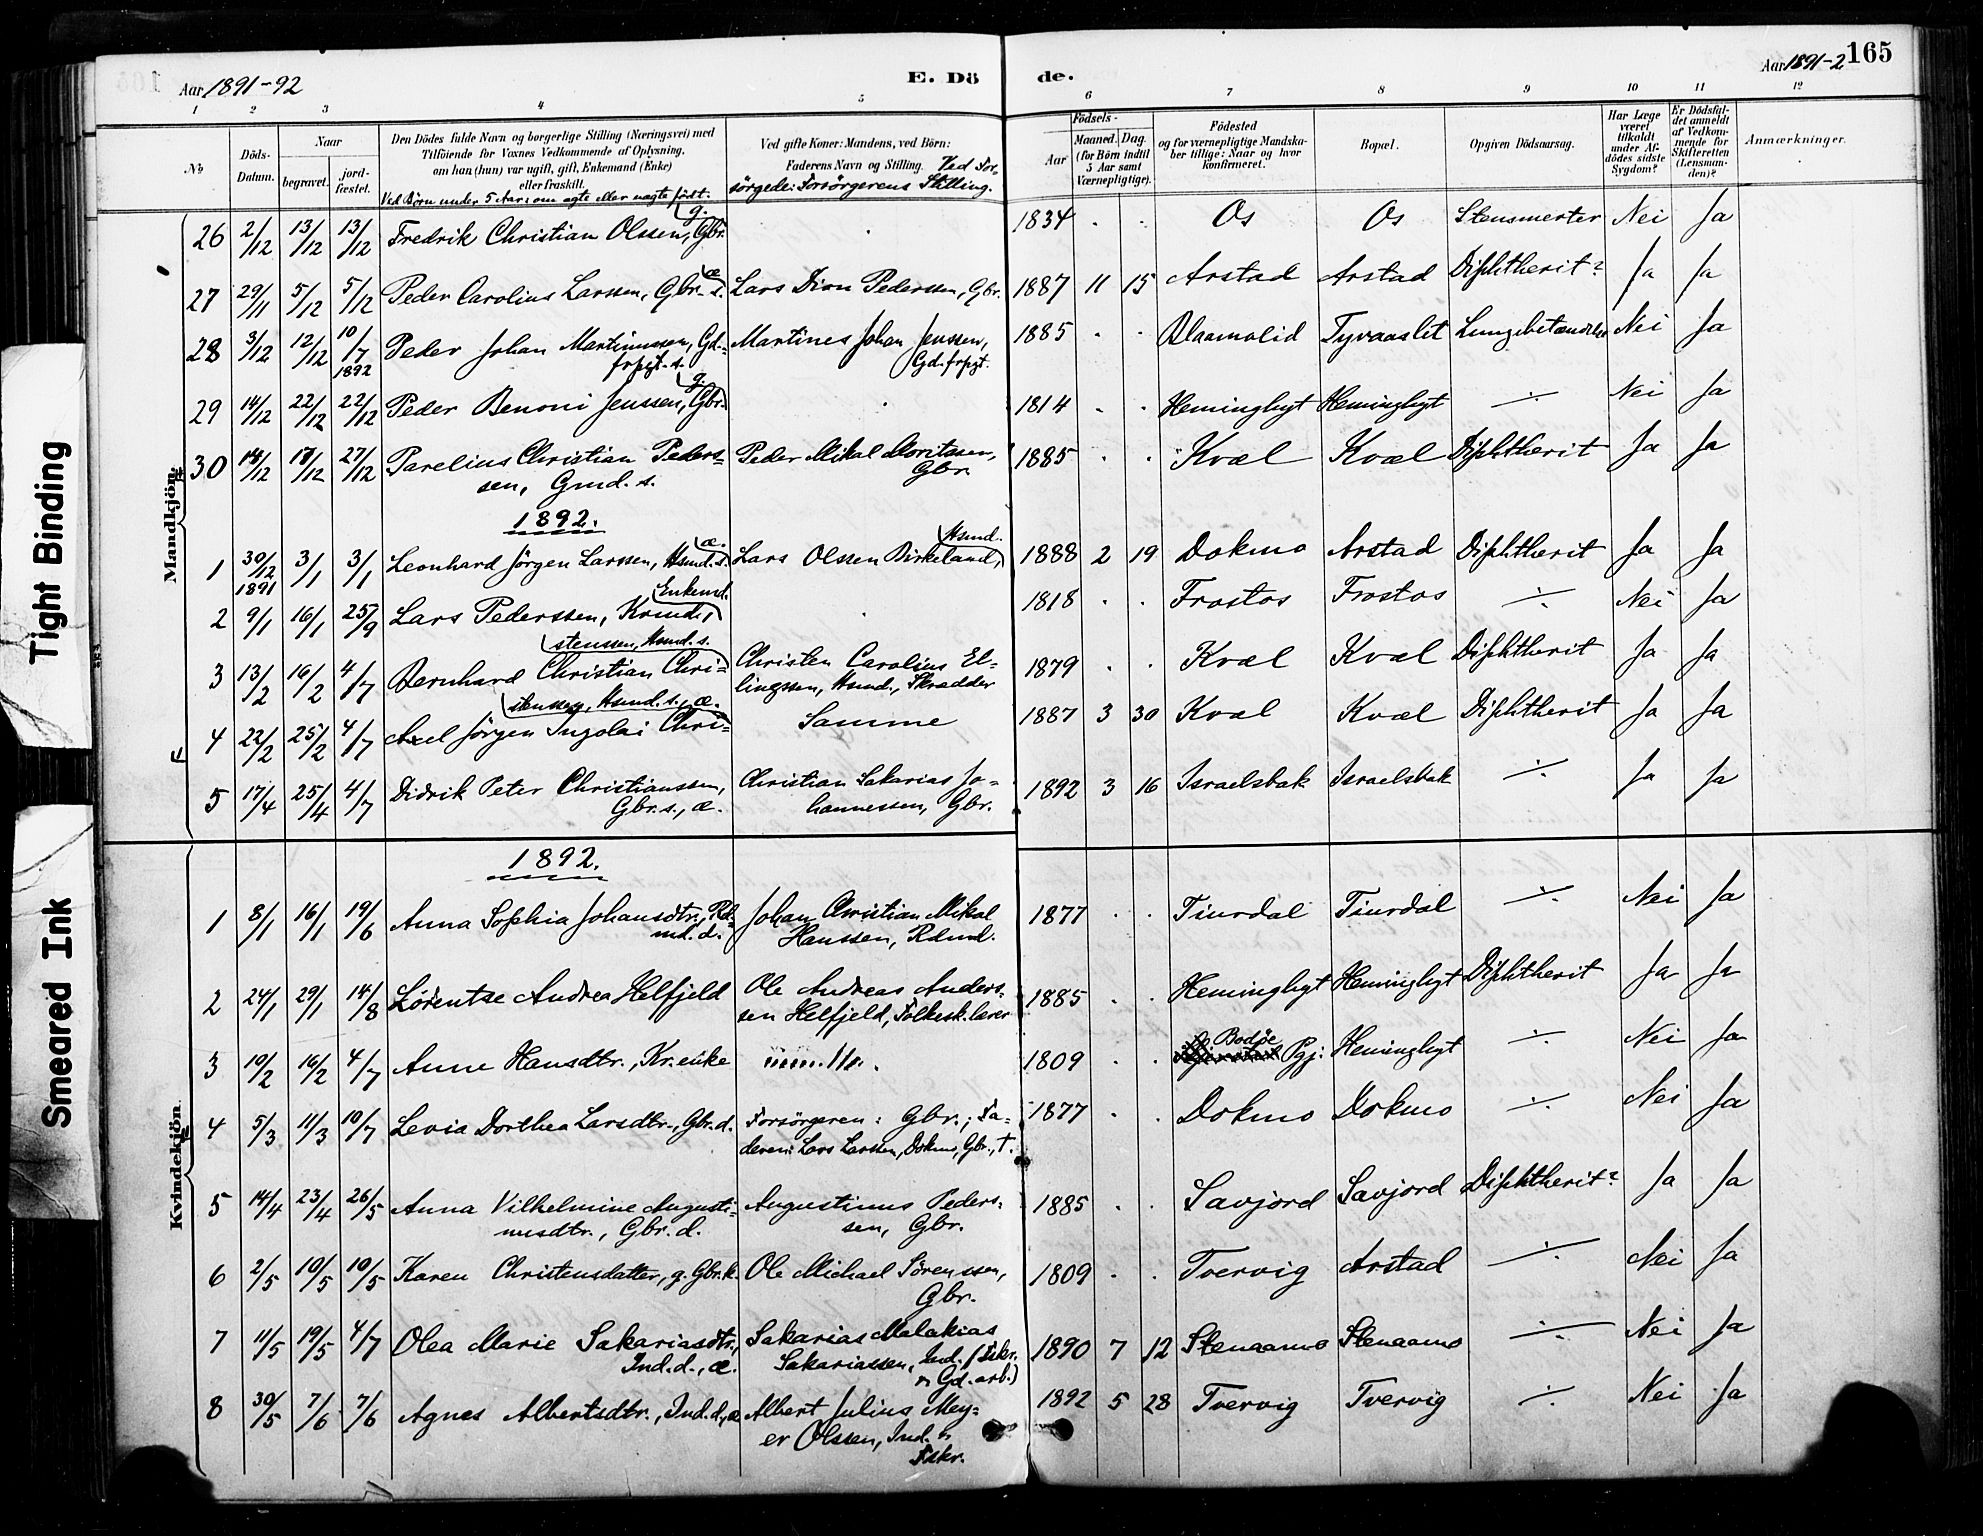 Aar 1891-92
E. Dö
de.
Aar 1891-2 165
1 2 3 4 5 6 7 8 9 10 11 12
№
Döds-Datum.
Naar
begravet.
jord-fæstet.
Den Dödes fulde Navn og borgerlige Stilling (Næringsvei) med
Tilföiende for Voxnes Vedkommende af Oplysning.
om han (hun) var ugift, gift, Enkemand (Enke)
eller fraskilt.
Ved Börn under 5 Aar: om ægte eller uægte født.
Ved gifte Koner: Mandens, ved Börn:
Faderens Navn og Stilling. Ved For-
sörgede: Forsörgerens Stilling.
Födsels-
Aar
Maaned. Dag.
(for Börn indtil
5 Aar samt
Værnepligtige).
Födested
og for værnepligtige Mandska-
ber tillige: Naar og hvor
konfirmeret.
Bopæl.
Opgiven Dödsaarsag.
Har Læge
været
tilkaldt
under Af-
dödes sidste
Sygdom?
Er Dödsfal-
det anmeldt
af Vedkom-
mende for
Skifteretten
(Lensman-
den)?
Anmærkninger.
Mandkjön.
26 2/12 13/12 13/12 Fredrik Christian Olssen, g. Gbr. 1834 . . Os Os Stensmerter Nei Ja
27 29/11 5/12 5/12 Peder Carolius Larssen, Gbr. s. æ Lars Dion Pederssen, Gbr. 1887 11 15 Arstad Arstad Diphtherit? Ja Ja
28 3/12 12/12 10/7 1892 Peder Johan Martinussen, Gd-
frpgt. s. Martines Johan Jenssen,
Gd. frpgt. 1885 . . Blaamolid Tyvaaslet Lungebetændelse Nei Ja
29 14/12 22/12 22/12 Peder Benoni Jenssen, g. Gbr. 1814 . . Heminghyt Heminghyt ÷ Nei Ja
30 14/12 17/12 27/12 Parelius Christian Peders-
sen, Gmd. s. Peder Mikal Moritssen,
Gbr. 1885 . . Kvæl Kvæl Diphtherit Ja Ja
1892.
1 30/12 1891 3/1 3/1 Leonhard Jörgen Larssen, Hsmd. s. æ. Lars Olssen Birkeland, Hsmd. 1888 2 19 Dokmo Arstad Diphtherit Ja Ja
2 9/1 16/1 25/9 Lars Pederssen, Krmd., Enkemd. 1818 . . Frostos Frostos ÷ Nei Ja
3 13/2 16/2 4/7 Bernhard Christian Chri-
stenssen, Hsmd. s. Christen Carolius El-
lingssen, Hsmd., Skrædder 1879 . . Kvæl Kvæl Diphtherit Ja Ja
4 22/2 25/2 4/7 Axel Jörgen Ingolai Chri-
stenssen, Hsmd. s., æ. Samme 1887 3 30 Kvæl Kvæl Diphtherit Ja Ja
5 17/4 25/4 4/7 Didrik Peter Christianssen,
Gbr. s., æ. Christian Sakarias Jo-
hannessen, Gbr. 1892 3 16 Israelsbak Israelsbak ÷ Ja Ja
Kvindekjön.
1892.
1 8/1 16/1 19/6 Anna Sophia Johansdtr., Rd-
md. d. Johan Christian Mikal
Hanssen, Rdmd. 1877 . . Tiurdal Tiurdal ÷ Nei Ja
2 24/1 29/1 14/8 Lörentse Andrea Helfjeld Ole Andreas Anders-
sen Helfjeld, Folkesk. lærer 1885 . . Heminghyt Heminghyt Diphtherit Ja Ja
3 10/2 16/2 4/7 Anne Hansdtr., Kr. enke 1809 . . Bodøe Pgj: Heminghyt ÷ Nei Ja
4 5/3 11/3 10/7 Levia Dorthea Larsdtr., Gbr. d. Forsörgeren: Gbr.; Fa-
deren: Lars Larssen, Dokmo, Gbr., †. 1877 . . Dokmo Dokmo ÷ Nei Ja
5 14/4 23/4 26/5 Anna Vilhelmine Augusti-
nusdtr., Gbr. d. Augustinus Peders-
sen, Gbr. 1885 . . Savjord Savjord Diphtherit? Ja Ja
6 2/5 10/5 10/5 Karen Christensdatter, g. Gbr. k. Ole Michael Sörenssen,
Gbr. 1809 . . Tvervig Arstad ÷ Nei Ja
7 11/5 19/5 4/7 Olea Marie Sakariasdtr.,
Ind. d., æ. Sakarias Malakias
Sakariassen, Ind. (Fskr.
n Gd. arb.) 1890 7 12 Stenaamo Stenaamo ÷ Nei Ja
8 30/5 7/6 7/6 Agnes Albertsdtr., Ind. d., æ Albert Julius Mey-
er Olssen, Ind. n
Fskr. 1892 5 28 Tvervig Tvervig ÷ Nei Ja
Tight Binding
Smeared Ink